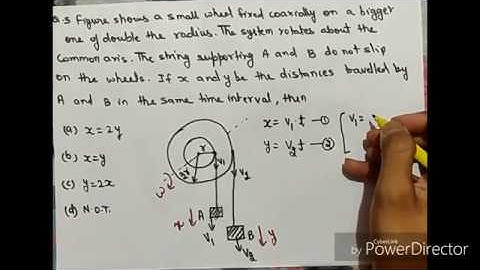 Q.5 Figure shows a small wheel fixed coaxially on a bigger
one of double the radius. The system rotates about the
common axis. The string supporting A and B do not slip
on the wheels. If x and y be the distances travelled by
A and B in the same time interval, then
(a) x = 2y
(b) x = y
(c) y = 2x
(d) N.O.T.
x = V₁ t — ①
y = V₂ t — ②
[ V₁ =
r
2r
V₁
V₂
ω
x
A
V₁
B
y
V₂
CyberLink
by PowerDirector